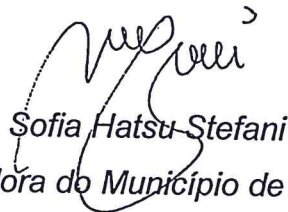 Sofia Hatsu Stefani
do Município de